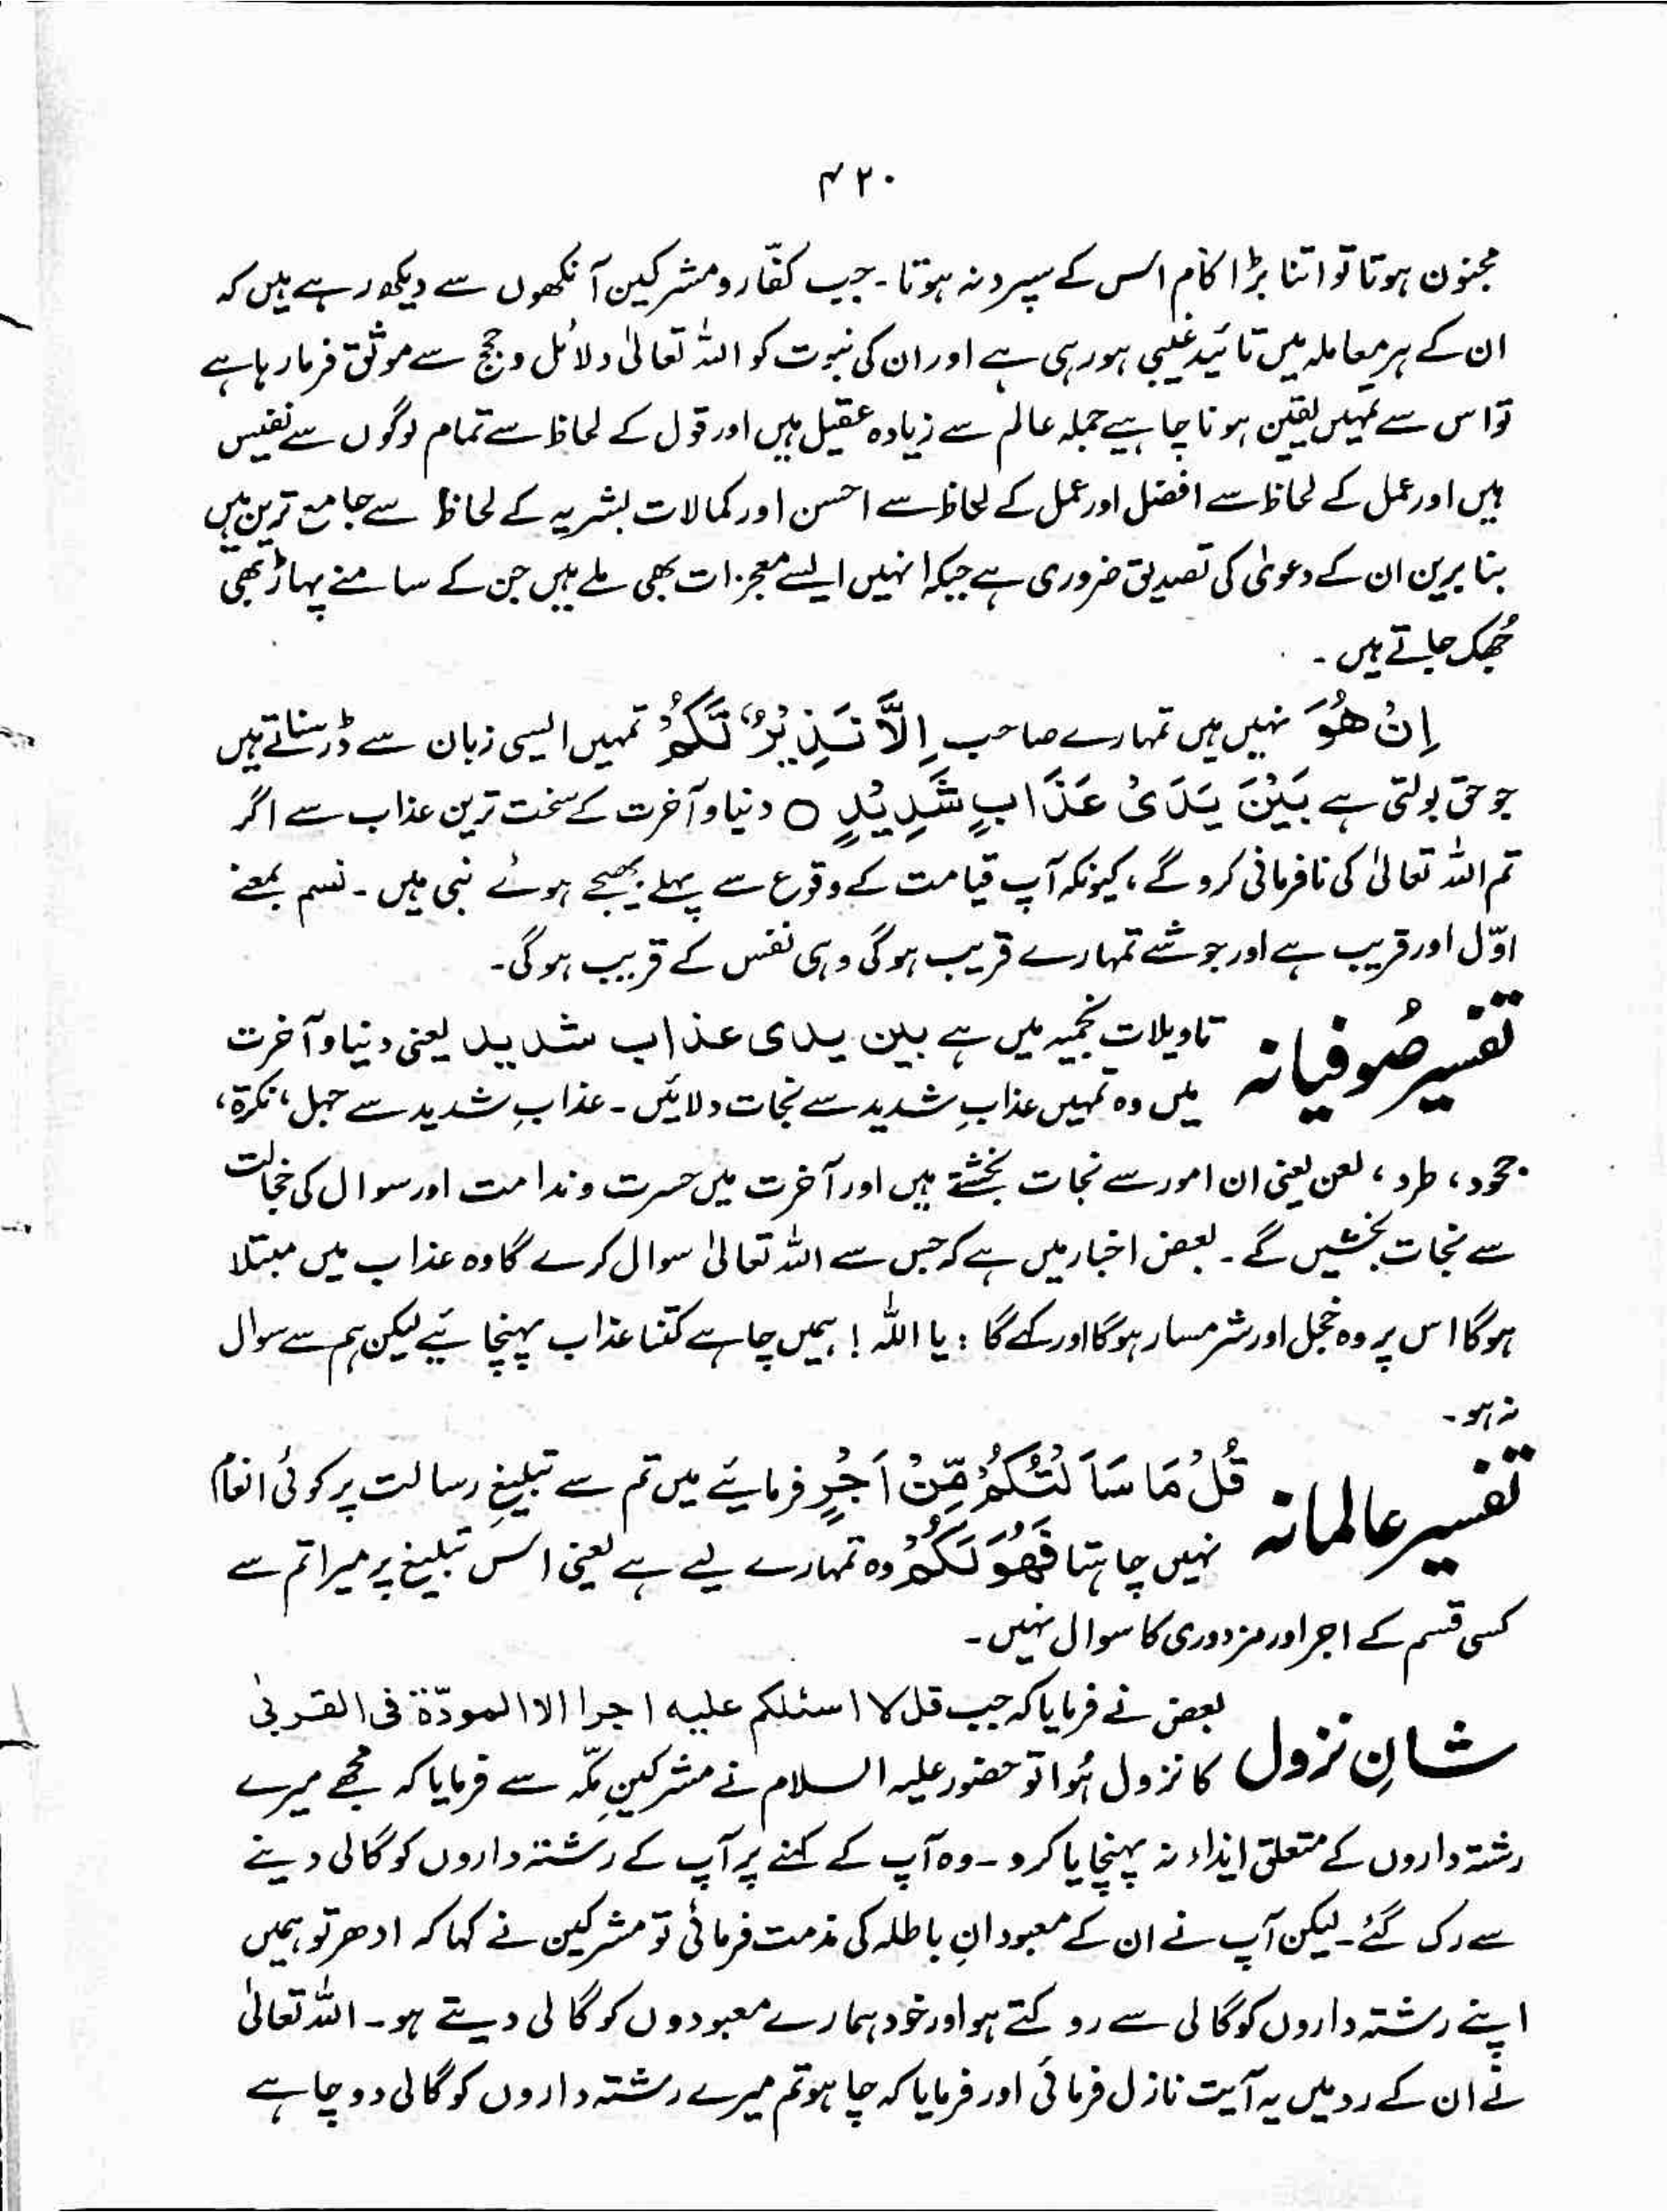 ۴۲۰
مجنون ہوتا تو اتنا بڑا کام اس کے سپرد نہ ہوتا۔ جب کفّار و مشرکین آنکھوں سے دیکھ رہے ہیں کہ
ان کے ہر معاملہ میں تائید غیبی ہو رہی ہے اور ان کی نبوت کو اللہ تعالیٰ دلائل و حجج سے موثق فرما رہا ہے
تو اس سے تمہیں یقین ہونا چاہیے جملہ عالم سے زیادہ عقیل ہیں اور قول کے لحاظ سے تمام لوگوں سے نفیس
ہیں اور عمل کے لحاظ سے افضل اور عمل کے لحاظ سے احسن اور کمالات بشریہ کے لحاظ سے جامع ترین ہیں
بنا بریں ان کے دعویٰ کی تصدیق ضروری ہے جبکہ انہیں ایسے معجزات بھی ملے ہیں جن کے سامنے پہاڑ بھی
جُھک جاتے ہیں۔
اِنْ هُوَ نہیں ہیں تمہارے صاحب اِلَّا نَذِیْرٌ لَّکُمْ تمہیں ایسی زبان سے ڈر سناتے ہیں
جو حق بولتی ہے بَیْنَ یَدَیْ عَذَابٍ شَدِیْدٍ ○ دنیا و آخرت کے سخت ترین عذاب سے اگر
تم اللہ تعالیٰ کی نافرمانی کرو گے، کیونکہ آپ قیامت کے وقوع سے پہلے بھیجے ہوئے نبی ہیں۔ نسم بمعنے
اوّل اور قریب ہے اور جو شے تمہارے قریب ہوگی وہی نفس کے قریب ہوگی۔
تفسیر صُوفیانہ تاویلات نجمیہ میں ہے بین یدی عذاب شدید یعنی دنیا و آخرت
میں وہ تمہیں عذابِ شدید سے نجات دلائیں۔ عذابِ شدید سے جہل، نکرۃ،
جحود، طرد، لعن یعنی ان امور سے نجات بخشتے ہیں اور آخرت میں حسرت و ندامت اور سوال کی خجالت
سے نجات بخشیں گے۔ بعض اخبار میں ہے کہ جس سے اللہ تعالیٰ سوال کرے گا وہ عذاب میں مبتلا
ہوگا اس پر وہ خجل اور شرمسار ہوگا اور کہے گا : یا اللہ ! ہمیں چاہے کتنا عذاب پہنچائیے لیکن ہم سے سوال
نہ ہو۔
تفسیر عالمانہ قُلْ مَا سَاَلْتُکُمْ مِّنْ اَجْرٍ فرمائیے میں تم سے تبلیغِ رسالت پر کوئی انعام
نہیں چاہتا فَهُوَ لَکُمْ وہ تمہارے لیے ہے یعنی اس تبلیغ پر میرا تم سے
کسی قسم کے اجر اور مزدوری کا سوال نہیں۔
شانِ نزول بعض نے فرمایا کہ جب قل لا اسئلکم علیه اجرا الا المودّۃ فی القربیٰ
کا نزول ہُوا تو حضور علیہ السلام نے مشرکینِ مکّہ سے فرمایا کہ مجھے میرے
رشتہ داروں کے متعلق ایذاء نہ پہنچایا کرو۔ وہ آپ کے کہنے پر آپ کے رشتہ داروں کو گالی دینے
سے رک گئے۔ لیکن آپ نے ان کے معبودانِ باطلہ کی مذمت فرمائی تو مشرکین نے کہا کہ ادھر تو ہمیں
اپنے رشتہ داروں کو گالی سے روکتے ہو اور خود ہمارے معبودوں کو گالی دیتے ہو۔ اللہ تعالیٰ
نے ان کے رد میں یہ آیت نازل فرمائی اور فرمایا کہ چاہو تم میرے رشتہ داروں کو گالی دو چاہے